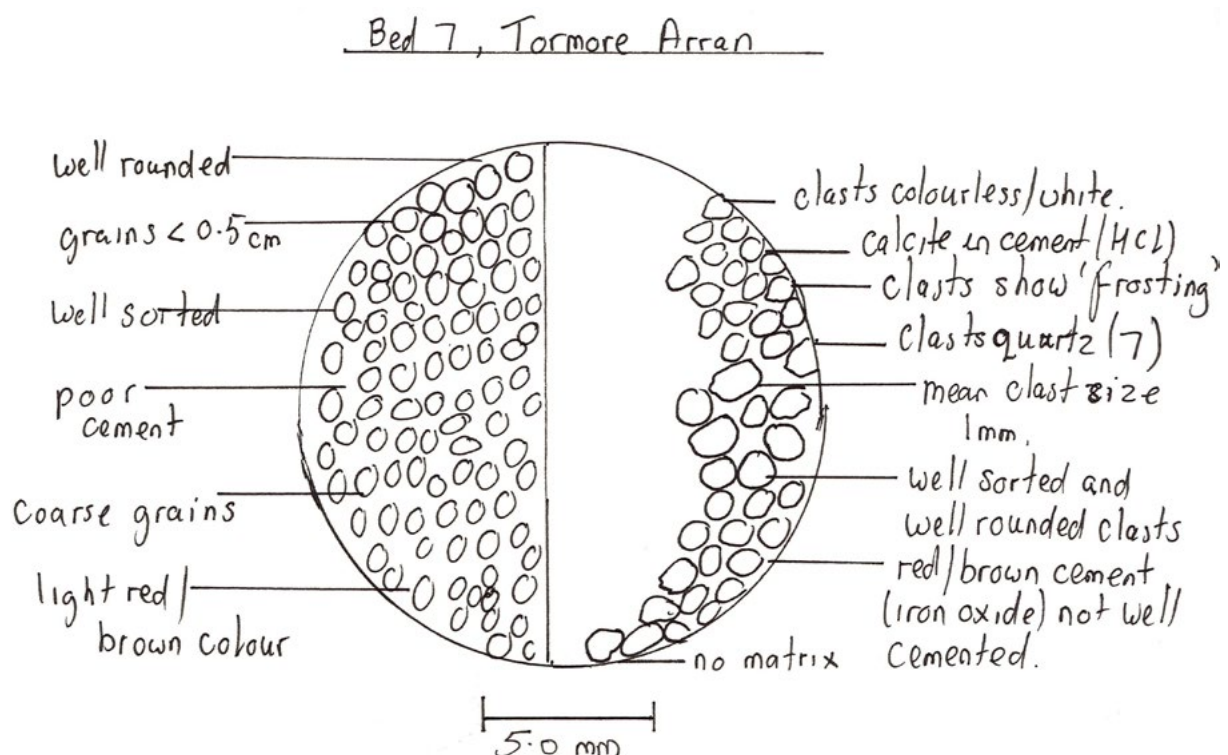 Bed 7, Tormore Arran
well rounded
grains < 0.5 cm
well sorted
poor
cement
coarse grains
light red/
brown colour
clasts colourless/white.
calcite in cement (HCl)
clasts show 'frosting'
clasts quartz (7)
mean clast size
1mm.
well sorted and
well rounded clasts
red/brown cement
(iron oxide) not well
cemented.
no matrix
5.0 mm